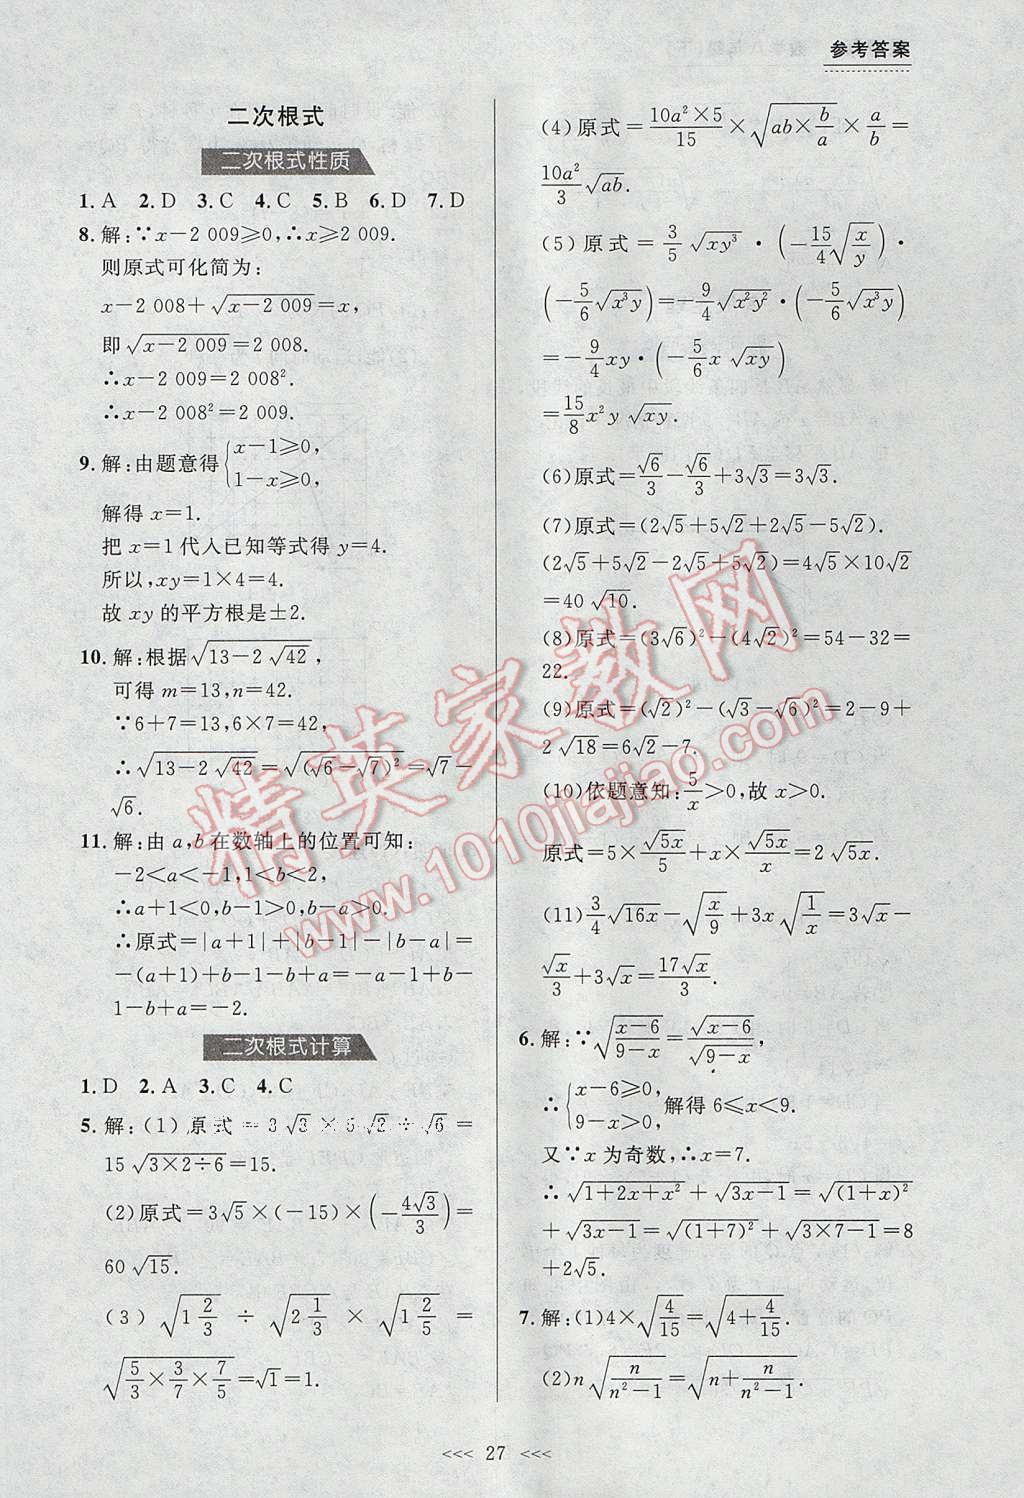 参考答案
二次根式
二次根式性质
1. A 2. D 3. C 4. C 5. B 6. D 7. D
8. 解:∵x−2 009≥0,∴x≥2 009.
则原式可化简为:
x−2 008+√(x−2 009)=x,
即√(x−2 009)=2 008.
∴x−2 009=2 008².
∴x−2 008²=2 009.
9. 解:由题意得{x−1≥0, 1−x≥0,
解得 x=1.
把 x=1代入已知等式得 y=4.
所以,xy=1×4=4.
故 xy 的平方根是±2.
10. 解:根据√(13−2√42),
可得 m=13,n=42.
∵6+7=13,6×7=42,
∴√(13−2√42)=√((√6−√7)²)=√7−
√6.
11. 解:由 a,b 在数轴上的位置可知:
−2<a<−1,1<b<2,
∴a+1<0,b−1>0,b−a>0.
∴原式=|a+1|+|b−1|−|b−a|=
−(a+1)+b−1−b+a=−a−1+b−
1−b+a=−2.
二次根式计算
1. D 2. A 3. C 4. C
5. 解:(1)原式=3√3×5√2÷√6=
15√(3×2÷6)=15.
(2)原式=3√5×(−15)×(−4√3/3)=
60√15.
(3)√(1 2/3)÷√(2 1/3)×√(1 2/5)=
√(5/3×3/7×7/5)=√1=1.
(4)原式=(10a²×5)/15×√(ab×b/a)×a/b=
10a²/3 √ab.
(5)原式=3/5 √(xy³)·(−15/4 √(x/y))·
(−5/6 √(x³y))=−9/4 √(x²y²)·(−5/6 √(x³y))
=−9/4 xy·(−5/6 x√xy)
=15/8 x²y√xy.
(6)原式=√6/3−√6/3+3√3=3√3.
(7)原式=(2√5+5√2+2√5−5√2).
(2√5+5√2−2√5+5√2)=4√5×10√2
=40√10.
(8)原式=(3√6)²−(4√2)²=54−32=
22.
(9)原式=(√2)²−(√3−√6)²=2−9+
2√18=6√2−7.
(10)依题意知:5/x>0,故 x>0.
原式=5×√5x/5+x×√5x/x=2√5x.
(11)3/4 √16x−√(x/9)+3x√(1/x)=3√x−
√x/3+3√x=17√x/3.
6. 解:∵√((x−6)/(9−x))=√(x−6)/√(9−x),
∴{x−6≥0, 9−x>0, 解得 6≤x<9.
又∵x 为奇数,∴x=7.
∴√(1+2x+x²)+√(3x−1)=√((1+x)²)
+√(3x−1)=√((1+7)²)+√(3×7−1)=8
+2√5.
7. 解:(1)4×√(4/15)=√(4+4/15).
(2)n√(n/(n²−1))=√(n+n/(n²−1)).
<<< 27 <<<
精英家教网
www.1010jiajiao.com